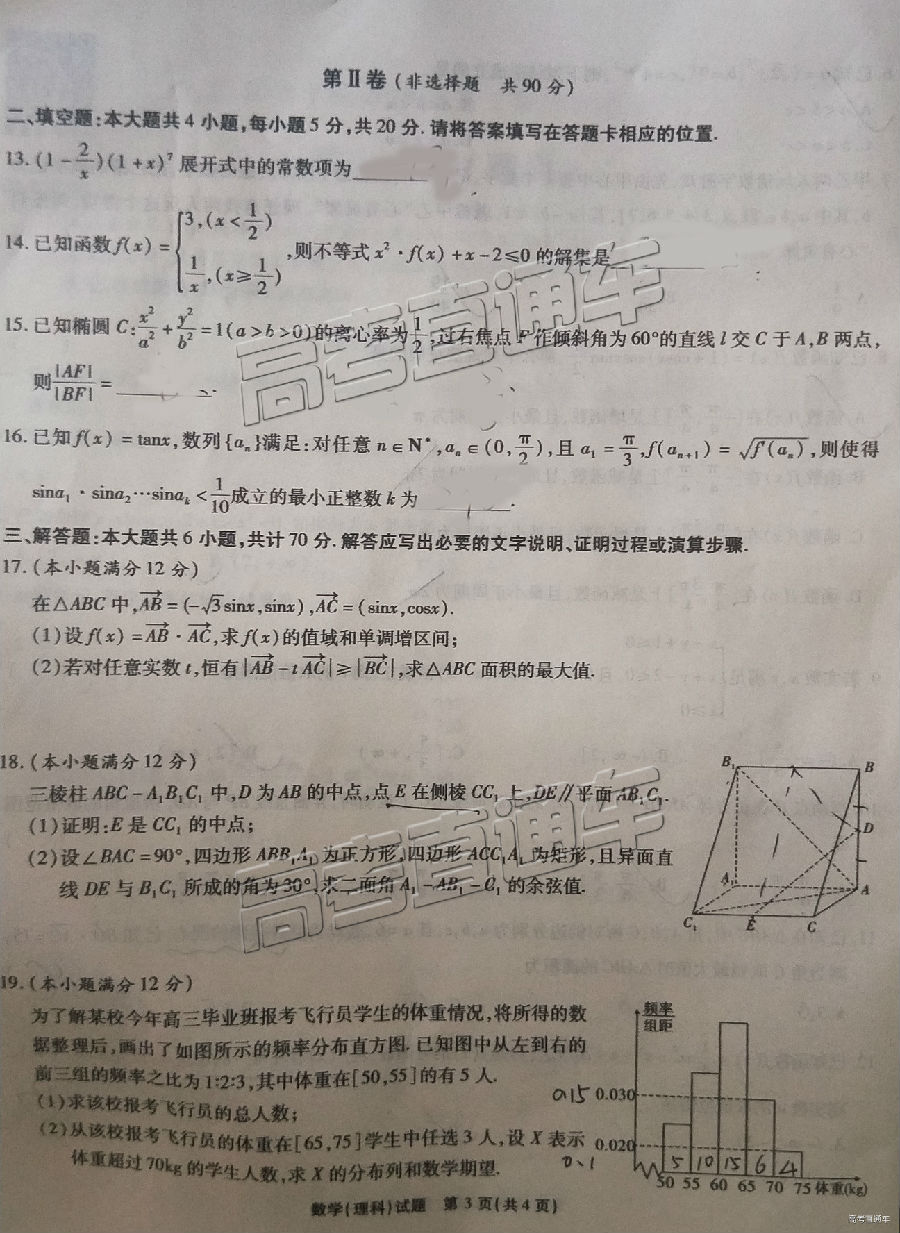 第Ⅱ卷(非选择题 共90分)
二、填空题:本大题共4小题,每小题5分,共20分.请将答案填写在答题卡相应的位置.
13.(1-2/x)(1+x)⁷展开式中的常数项为________
14.已知函数f(x)={3,(x<1/2) 1/x,(x≥1/2),则不等式x²·f(x)+x-2≤0的解集是
15.已知椭圆C:x²/a²+y²/b²=1(a>b>0)的离心率为1/2,过右焦点F作倾斜角为60°的直线l交C于A,B两点,
则|AF|/|BF|=________.
16.已知f(x)=tanx,数列{aₙ}满足:对任意n∈N*,aₙ∈(0,π/2),且a₁=π/3,f(aₙ₊₁)=√f′(aₙ),则使得
sina₁·sina₂…sinaₖ<1/10成立的最小正整数k为________.
三、解答题:本大题共6小题,共计70分.解答应写出必要的文字说明、证明过程或演算步骤.
17.(本小题满分12分)
在△ABC中,AB=(-√3sinx,sinx),AC=(sinx,cosx).
(1)设f(x)=AB·AC,求f(x)的值域和单调增区间;
(2)若对任意实数t,恒有|AB-tAC|≥|BC|,求△ABC面积的最大值.
18.(本小题满分12分)
三棱柱ABC-A₁B₁C₁中,D为AB的中点,点E在侧棱CC₁上,DE∥平面AB₁C₁.
(1)证明:E是CC₁的中点;
(2)设∠BAC=90°,四边形ABB₁A₁为正方形,四边形ACC₁A₁为矩形,且异面直
线DE与B₁C₁所成的角为30°,求二面角A₁-AB₁-C₁的余弦值.
B₁ B
D
A₁ A
C₁ E C
19.(本小题满分12分)
为了解某校今年高三毕业班报考飞行员学生的体重情况,将所得的数
据整理后,画出了如图所示的频率分布直方图.已知图中从左到右的
前三组的频率之比为1:2:3,其中体重在[50,55]的有5人.
(1)求该校报考飞行员的总人数;
(2)从该校报考飞行员的体重在[65,75]学生中任选3人,设X表示
体重超过70kg的学生人数,求X的分布列和数学期望.
频率
组距
0.15 0.030
0.020
0.1
5 10 15 6 4
50 55 60 65 70 75 体重(kg)
数学(理科)试题 第3页(共4页)
高考直通车
高考直通车
高考直通车
高考直通车